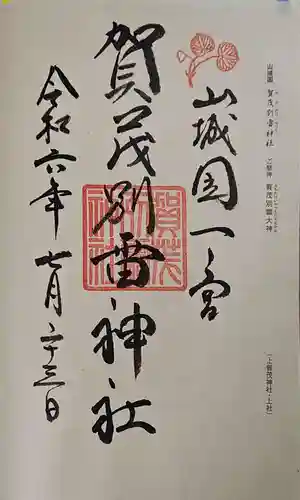 山城國 賀茂別雷神社 ご祭神 賀茂別雷大神
(上賀茂神社・上社)
山城国一之宮
賀茂別雷神社
令和六年七月二十三日